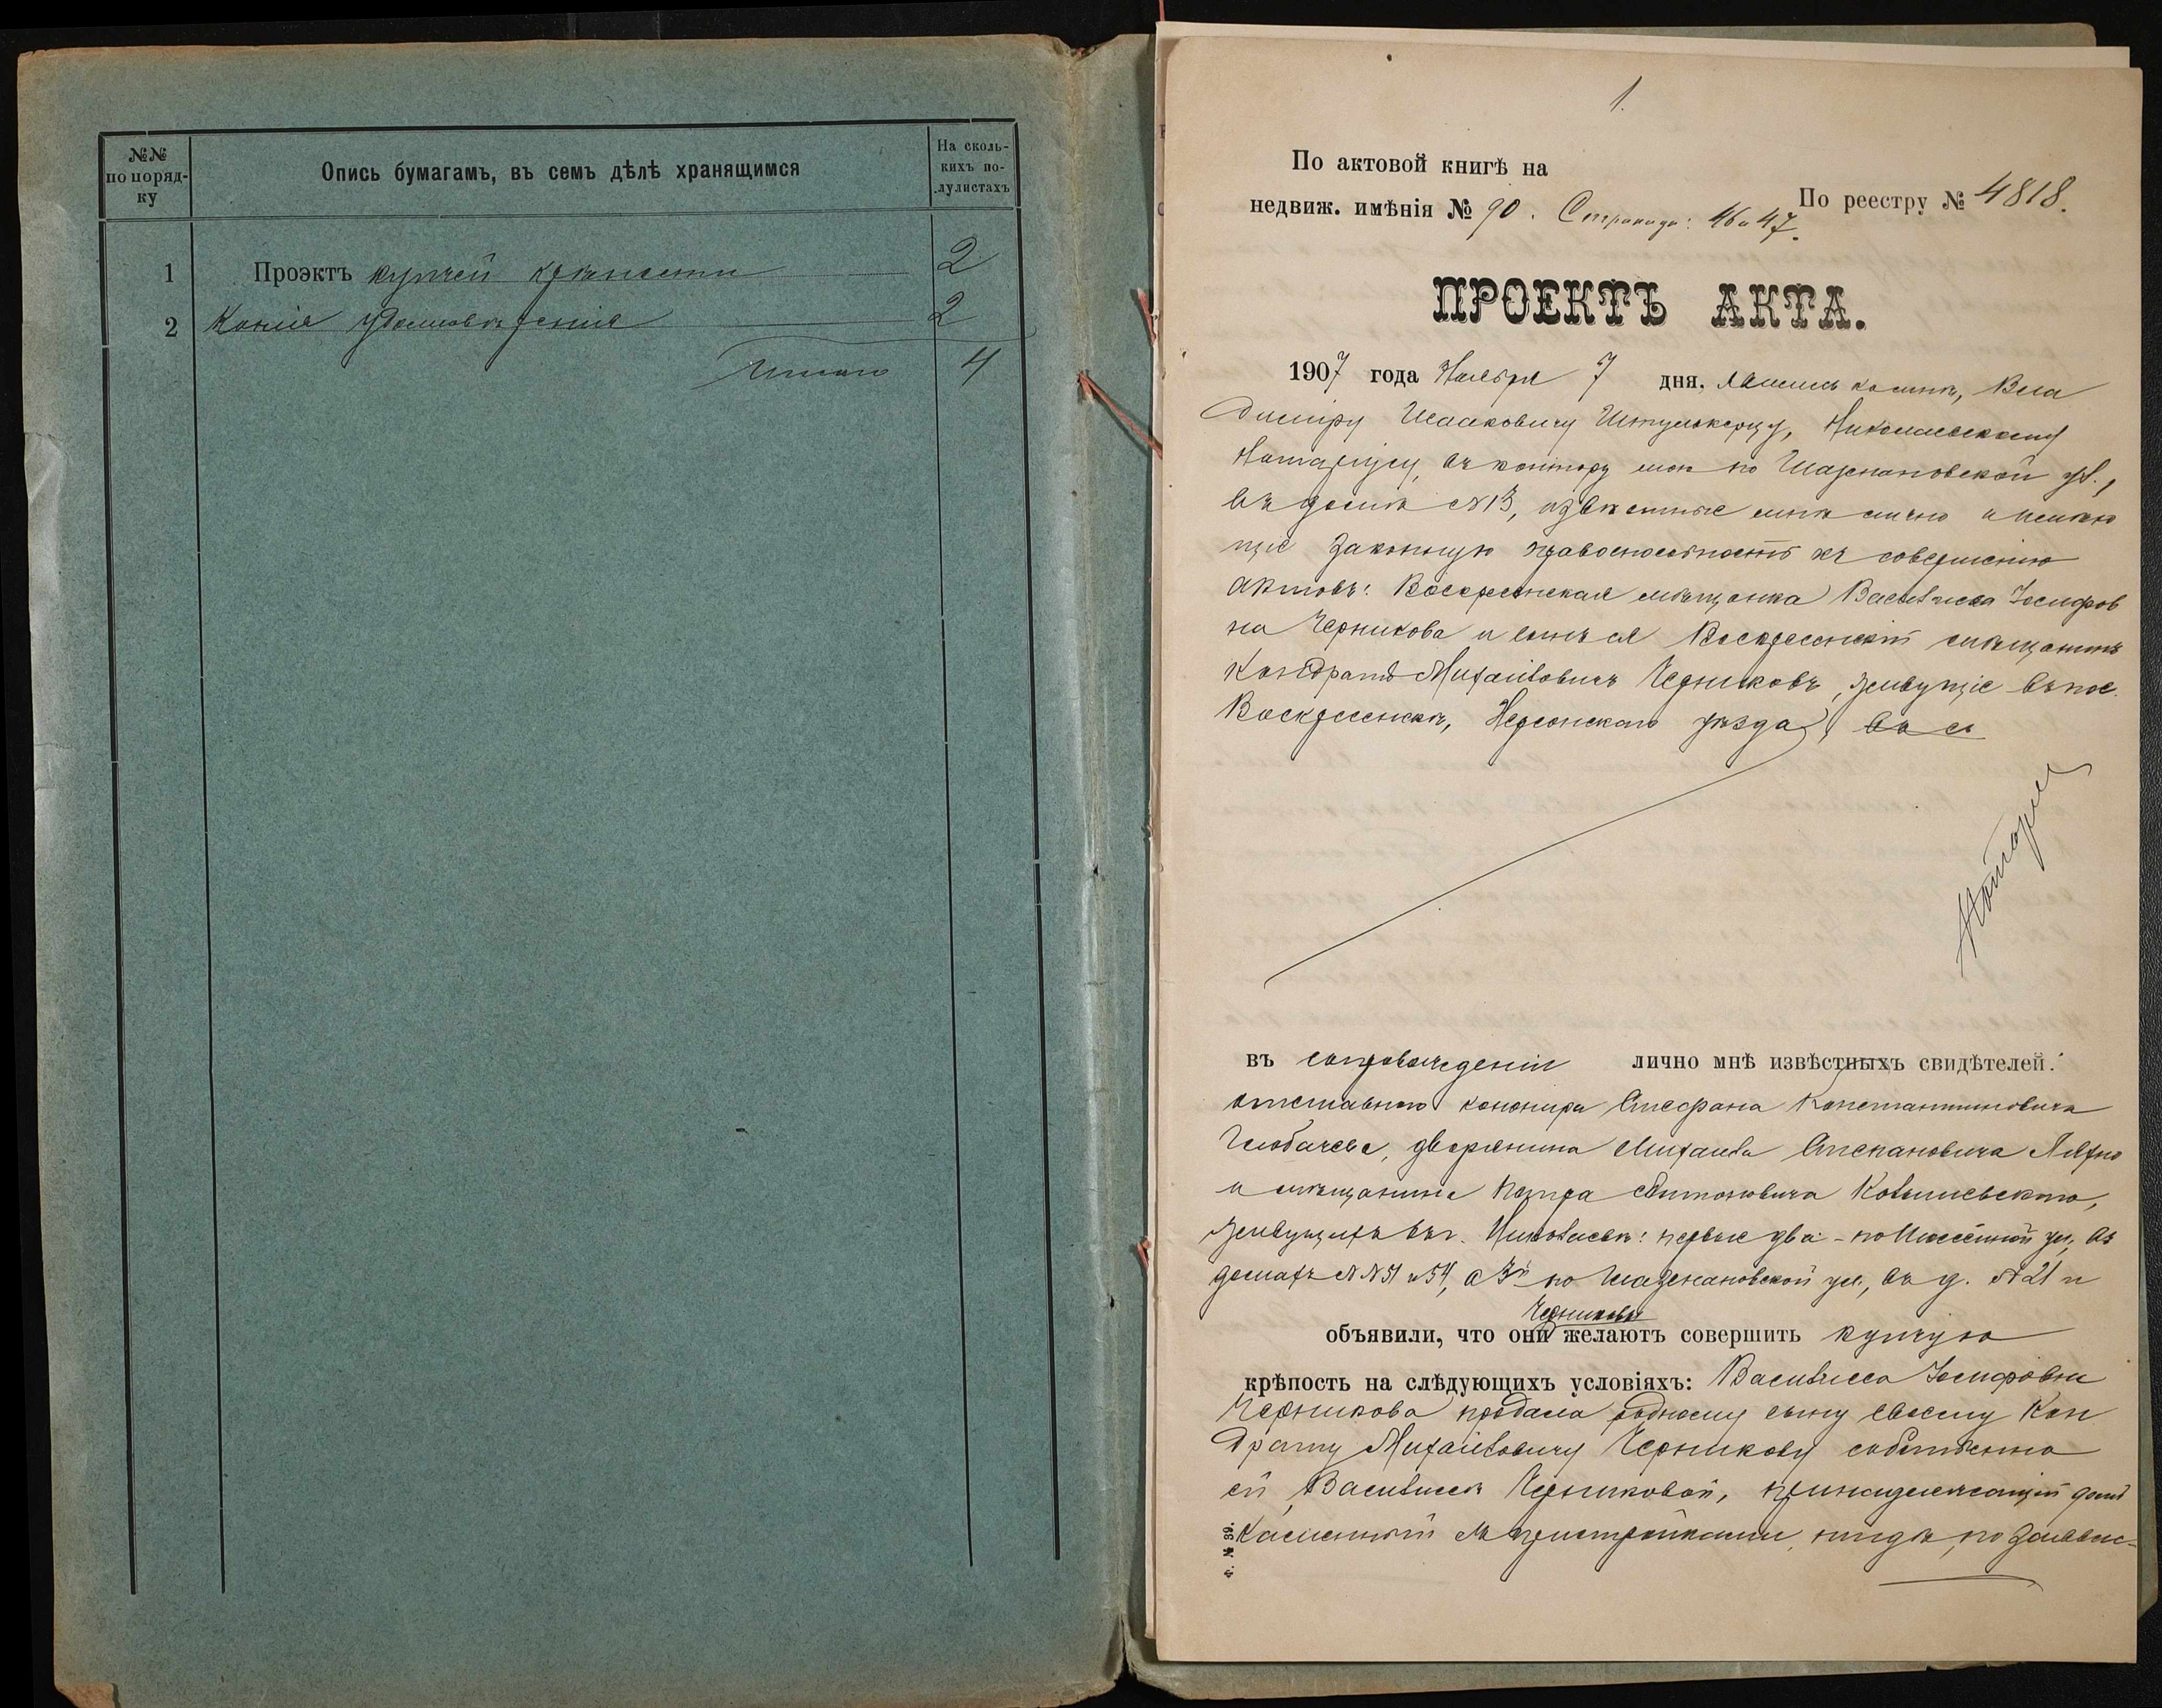 №№ по поряд-ку
Опись бумагамъ, въ семъ дѣлѣ хранящимся
На сколь-кихъ по-лулистахъ
1 Проэктъ купчей крѣпости 2
2 Копія удостовѣренія 2
Итого 4
1.
По актовой книгѣ на
недвиж. имѣнія № 90. Страница: 46 и 47.
По реестру № 4818.
ПРОЕКТЪ АКТА.
1907 года Ноября 7 дня, явились ко мнѣ, Вла
диміру Исааковичу Штулькерцу, Николаевскому
Нотаріусу, въ контору мою по ул.,
въ домѣ №13, извѣстные мнѣ лично и имѣю
щіе законную правоспособность къ совершенію
актовъ: Воскресенская мѣщанка Василисса Іосифов
на Черникова и сынъ ея Воскресенскій мѣщанинъ
Кондратъ Михайловичъ Черниковъ, живущіе въ пос.
Воскресенскѣ, Херсонскаго уѣзда, въ с
Нотаріусъ
въ сопровожденіи лично мнѣ извѣстныхъ свидѣтелей:
отставного канонира Стефана Константиновича
дворянина Михаила Степановича
и мѣщанина Петра Антоновича
живущихъ въ г. Николаевѣ: первые два - по ул., въ
домахъ №№51 и 54, а 3й по ул., въ д. №21 и
Черниковы
объявили, что они желаютъ совершить купчую
крѣпость на слѣдующихъ условіяхъ: Василисса Іосифовна
Черникова продала родному сыну своему Кон
драту Михайловичу Черникову собственно
ей, Василисѣ Черниковой, принадлежащій домъ
каменный съ пристройками,
Ф. № 39.